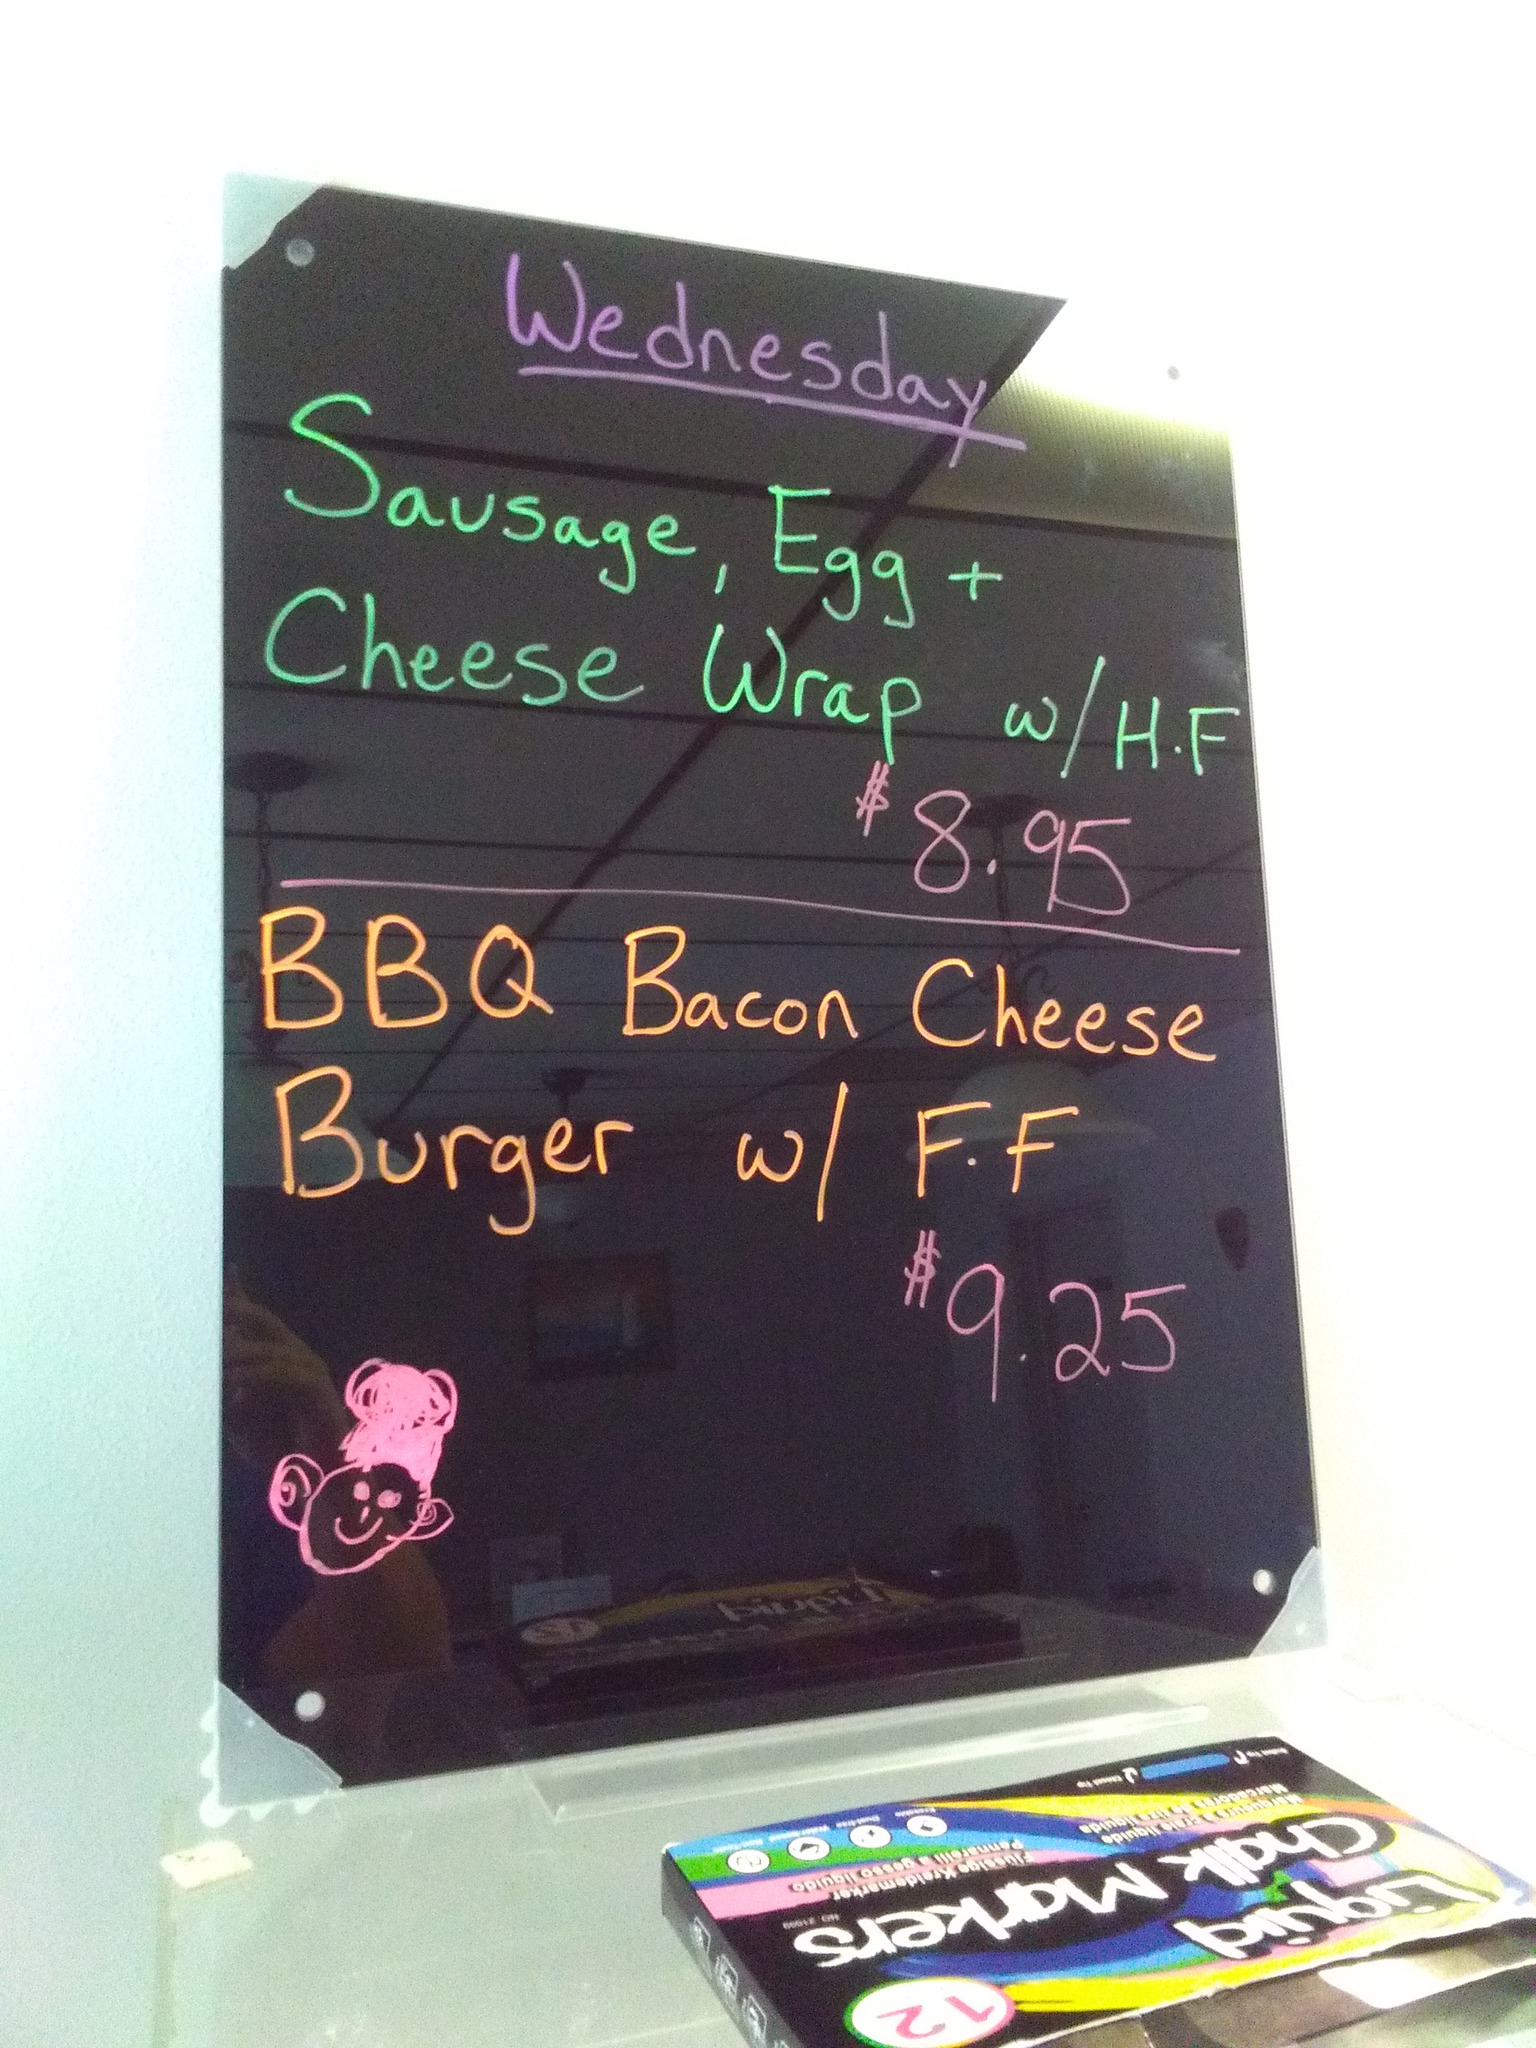 Wednesday
Sausage, Egg +
Cheese Wrap w/ H.F
$8.95
BBQ Bacon Cheese
Burger w/ F.F
$9.25
Liquid
Chalk Markers
Marqueurs à craie liquide
Marcadores de tiza líquida
Flüssige Kreidemarker
Pennarelli a gesso liquido
12